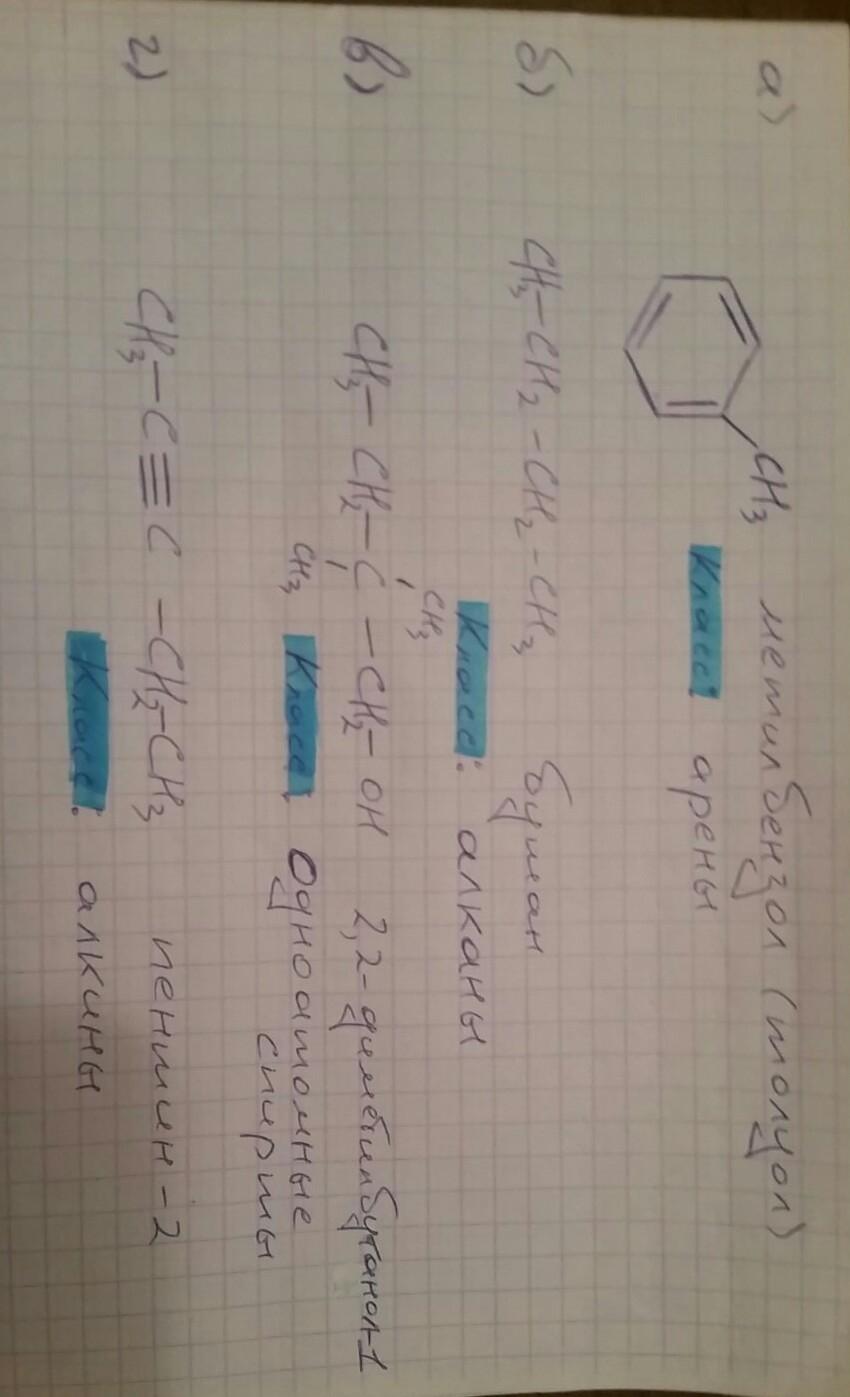 а)
CH3 метилбензол (толуол)
Класс: арены
б) CH3-CH2-CH2-CH3 бутан
Класс: алканы
CH3
в) CH3-CH2-C-CH2-OH 2,2-диметилбутанол-1
CH3 Класс: Одноатомные
спирты
г) CH3-C≡C-CH2-CH3 пентин-2
Класс: алкины